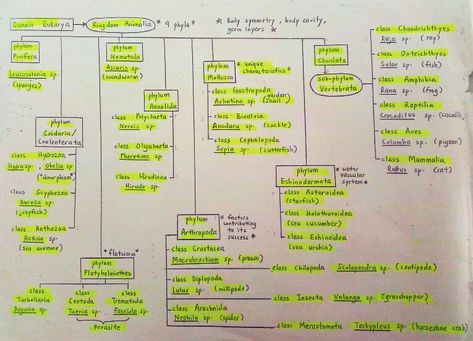 Domain Eukarya
Kingdom Animalia
* 9 phyla *
* Body symmetry, body cavity,
germ layers *
phylum
Porifera
Leucosolenia sp.
(sponges)
phylum
Nematoda
Ascaris sp.
(roundworm)
phylum
Mollusca
* unique
characteristics *
class Gastropoda
Achatina sp. (garden snail)
class Bivalvia
Anadara sp. (cockle)
class Cephalopoda
Sepia sp. (cuttlefish)
phylum
Chordata
sub-phylum
Vertebrata
class Chondrichthyes
Raja sp. (ray)
class Osteichthyes
(fish)
class Amphibia
Rana sp. (frog)
class Reptilia
Crocodilus sp.
class Aves
Columba sp. (pigeon)
class Mammalia
Rattus sp. (rat)
phylum
Annelida
class Polychaeta
Nereis sp.
class Oligochaeta
Pheretima sp.
class Hirudinea
Hirudo sp.
phylum
Cnidaria/
Coelenterata
class Hydrozoa
Hydra sp., Obelia sp.
class Scyphozoa
Aurelia sp.
(jellyfish)
class Anthozoa
Actinia sp.
(sea anemone)
phylum
Echinodermata
* water
vascular
system *
class Asteroidea
(starfish)
class Holothuroidea
(sea cucumber)
class Echinoidea
(sea urchin)
phylum
Arthropoda
* factors
contributing
to its
success *
class Crustacea
Macrobrachium sp. (prawn)
class Diplopoda
(millipede)
class Arachnida
Nephila sp. (spider)
class Chilopoda Scolopendra sp. (centipede)
class Insecta Valanga sp. (grasshopper)
class Merostomata Tachypleus sp. (horseshoe crab)
* flatworm *
phylum
Platyhelminthes
class
Turbellaria
Dugesia sp.
class
Cestoda
Taenia sp.
class
Trematoda
Fasciola sp.
Parasite